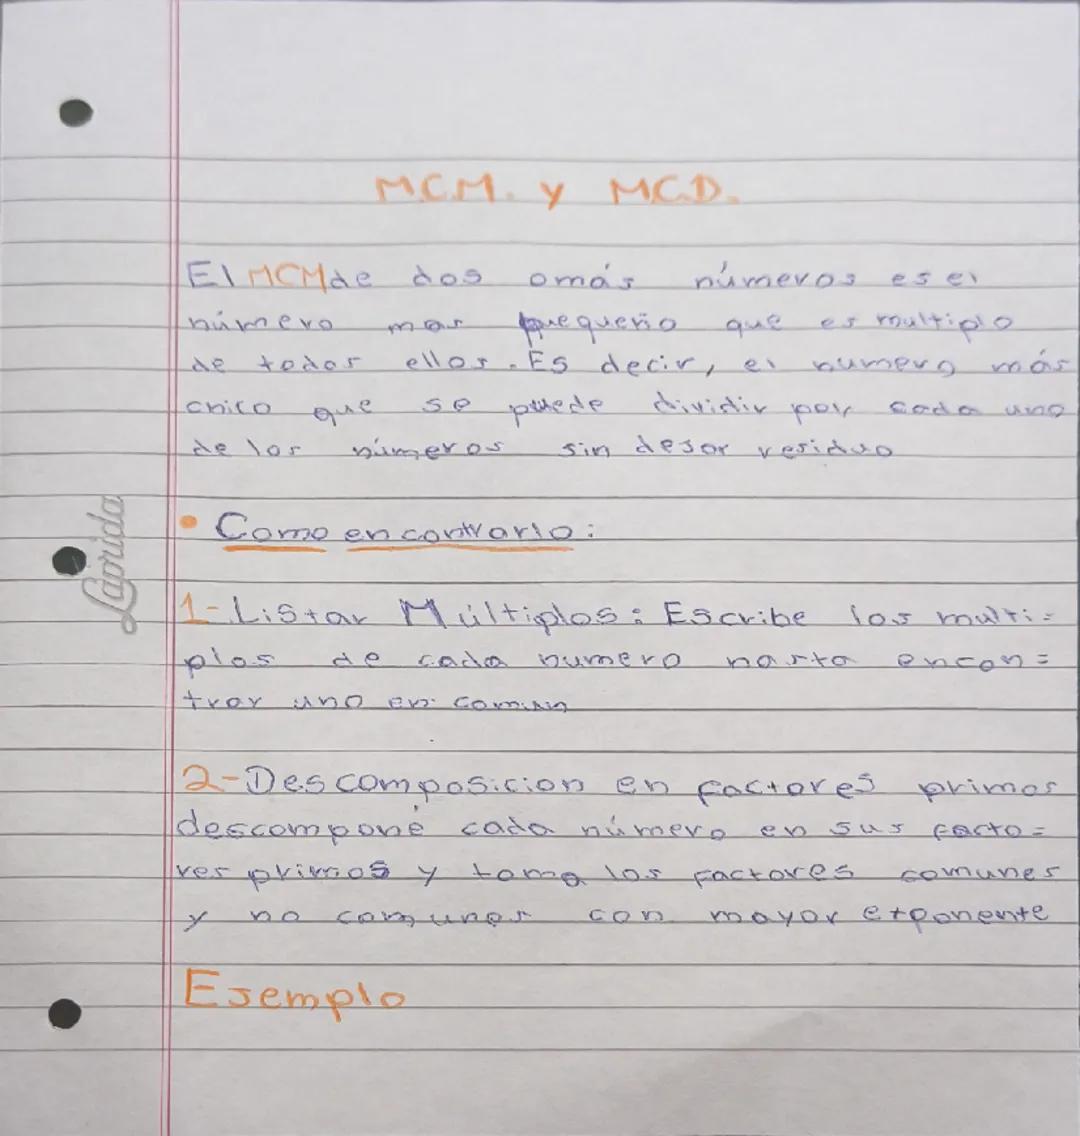 M.C.M. y M.C.D.
El MCM de dos o más números es el
número mas pequeño que es multiplo
de todos ellos. Es decir, el numero más
chico que se puede dividir por cada uno
de los números sin dejar residuo
• Como encontrarlo:
1-Listar Múltiplos: Escribe los multi=
plos de cada numero hasta encon=
trar uno en común
2-Descomposicion en factores primos
descomponé cada número en sus facto=
res primos y toma los factores comunes
y no comunes con mayor exponente
Ejemplo
Laprida